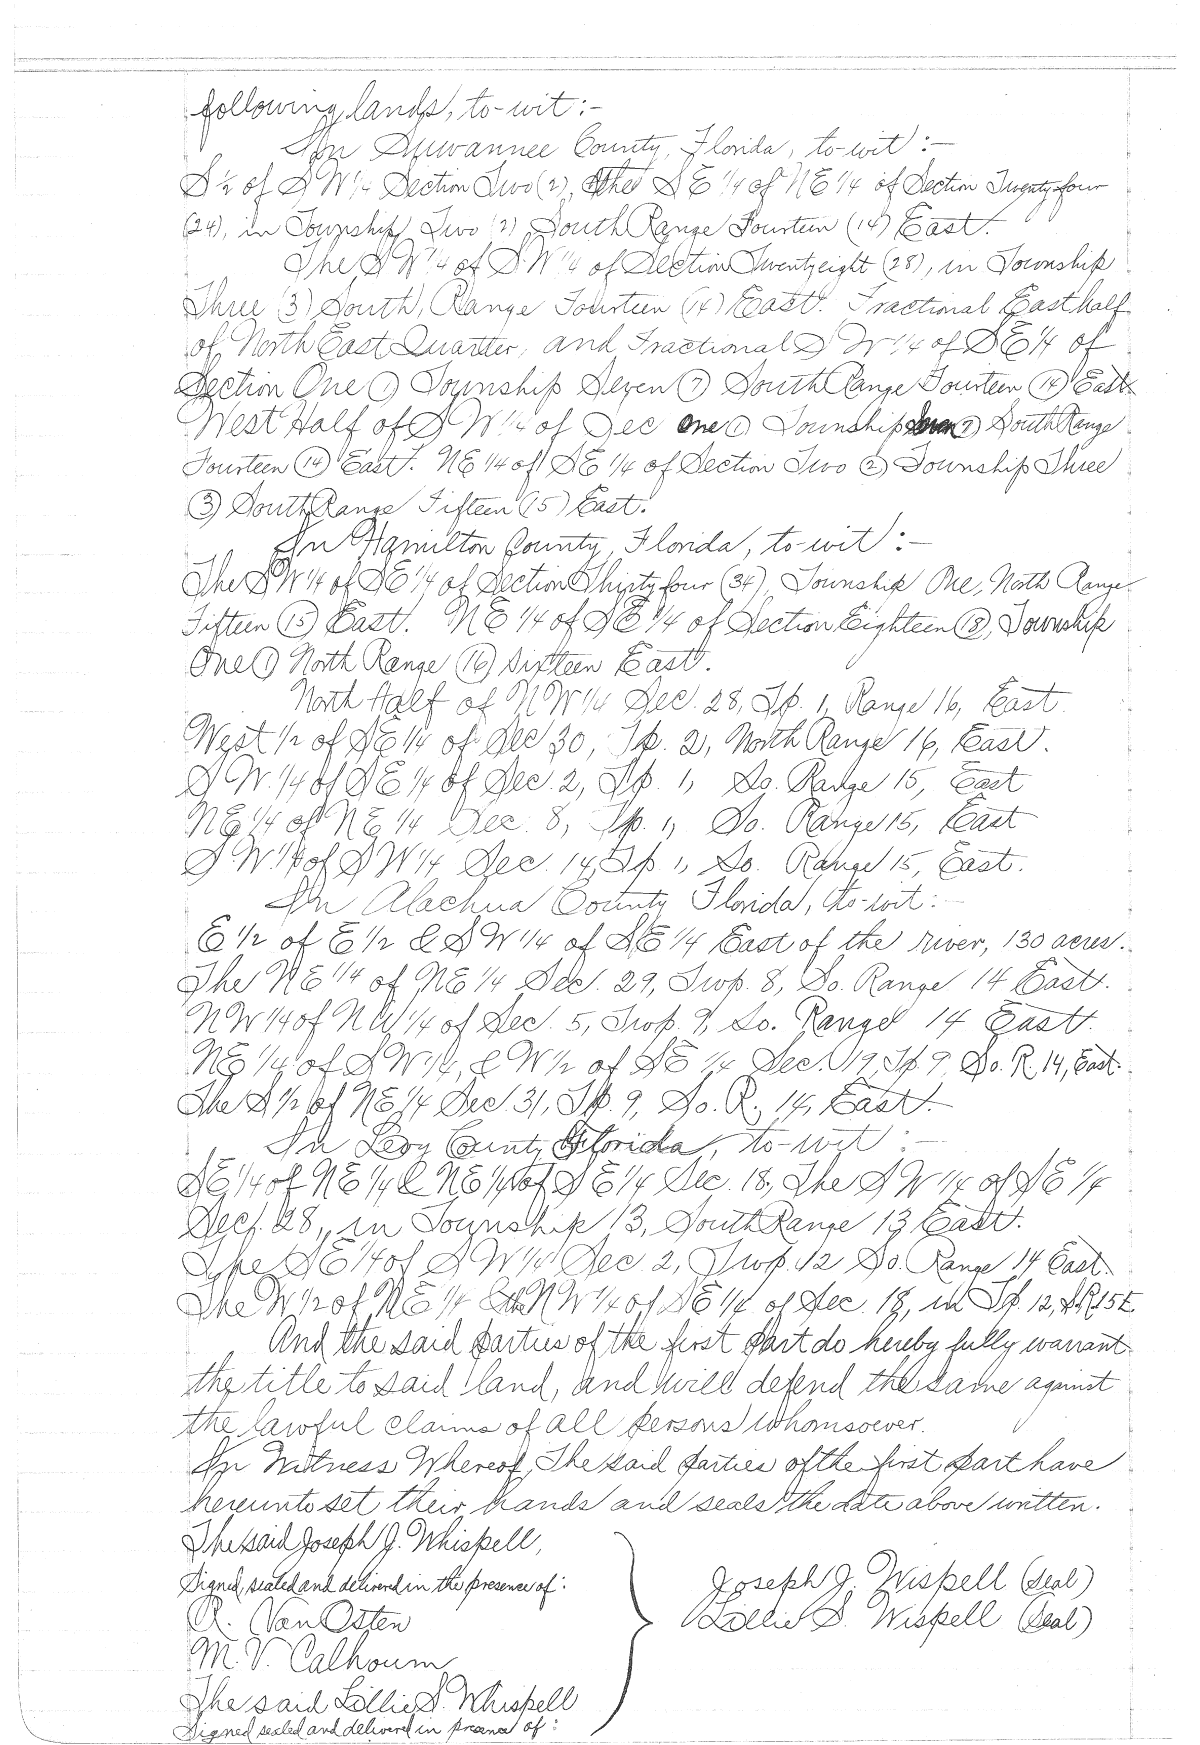 following lands, to-wit:-
In Suwannee County, Florida, to-wit:-
S½ of SW¼ Section Two (2), the SE¼ of NE¼ of Section Twenty four
(24), in Township Two (2) South Range Fourteen (14) East.
The SW¼ of SW¼ of Section Twenty eight (28), in Township
Three (3) South, Range Fourteen (14) East. Fractional East half
of North East Quarter, and Fractional SW¼ of SE¼ of
Section One (1) Township Seven (7) South Range Fourteen (14) East.
West Half of SW¼ of Sec One (1) Township Seven (7) South Range
Fourteen (14) East. NE¼ of SE¼ of Section Two (2) Township Three
(3) South Range Fifteen (15) East.
In Hamilton County, Florida, to-wit:-
The SW¼ of SE¼ of Section Thirty four (34), Township One, North Range
Fifteen (15) East. NE¼ of SE¼ of Section Eighteen (18), Township
One (1) North Range (16) Sixteen East.
North Half of NW¼ Sec. 28, Tp. 1, Range 16, East.
West ½ of SE¼ of Sec 30, Tp. 2, North Range 16, East.
SW.¼ of SE¼ of Sec. 2, Tp. 1, So. Range 15, East
NE¼ of NE¼ Sec. 8, Tp. 1, So. Range 15, East
SW.¼ of SW¼ Sec. 14, Tp 1, So. Range 15, East.
In Alachua County Florida, to-wit:-
E½ of E½ & SW¼ of SE¼ East of the river, 130 acres.
The NE¼ of NE¼ Sec. 29, Twp. 8, So. Range 14 East.
NW¼ of NW¼ of Sec. 5, Twp. 9, So. Range 14 East.
NE¼ of SW¼, & W½ of SE¼ Sec. 19, Tp 9, So. R. 14, East.
The S½ of NE¼ Sec. 31, Tp. 9, So. R., 14, East.
In Levy County Florida, to-wit:-
SE¼ of NE¼ & NE¼ of SE¼ Sec. 18, The SW¼ of SE¼
Sec. 28, in Township 13, South Range 13 East.
The SE¼ of SW¼ Sec. 2, Twp. 12 So. Range 14 East.
The W½ of NE¼ & the NW¼ of SE¼ of Sec. 18, in Tp. 12, S.R 15 E.
And the said parties of the first part do hereby fully warrant
the title to said land, and will defend the same against
the lawful claims of all persons whomsoever.
In Witness Whereof, The said parties of the first part have
hereunto set their hands and seals the date above written.
The said Joseph J. Whispell,
Signed, sealed and delivered in the presence of:
R. Van Osten
M. V. Calhoum
The said Lillie S. Whispell
Signed sealed and delivered in presence of:
Joseph J. Wispell (Seal)
Lillie S. Wispell (Seal)